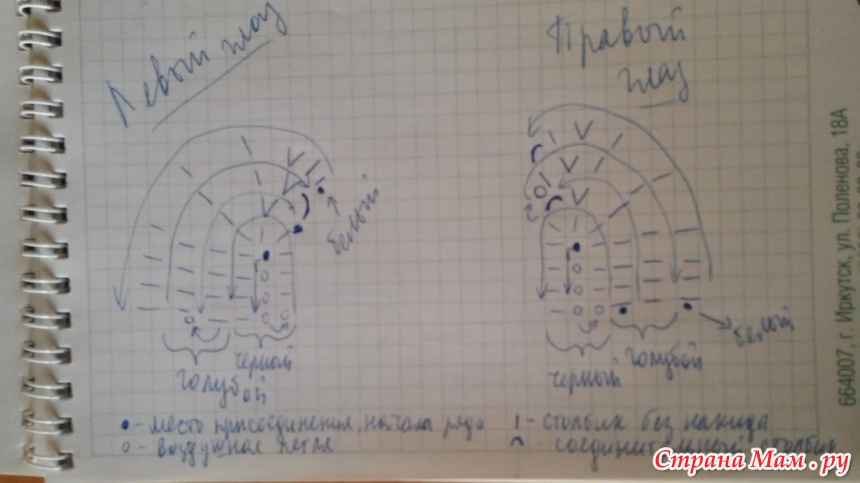 Левый глаз
Правый
глаз
белый
белый
черный
голубой
черный
голубой
● - место присоединения, начала ряда
○ - воздушная петля
ı - столбик без накида
⌒ - соединительный столбик
664007, г. Иркутск, ул. Поленова, 18А
Страна Мам.ру